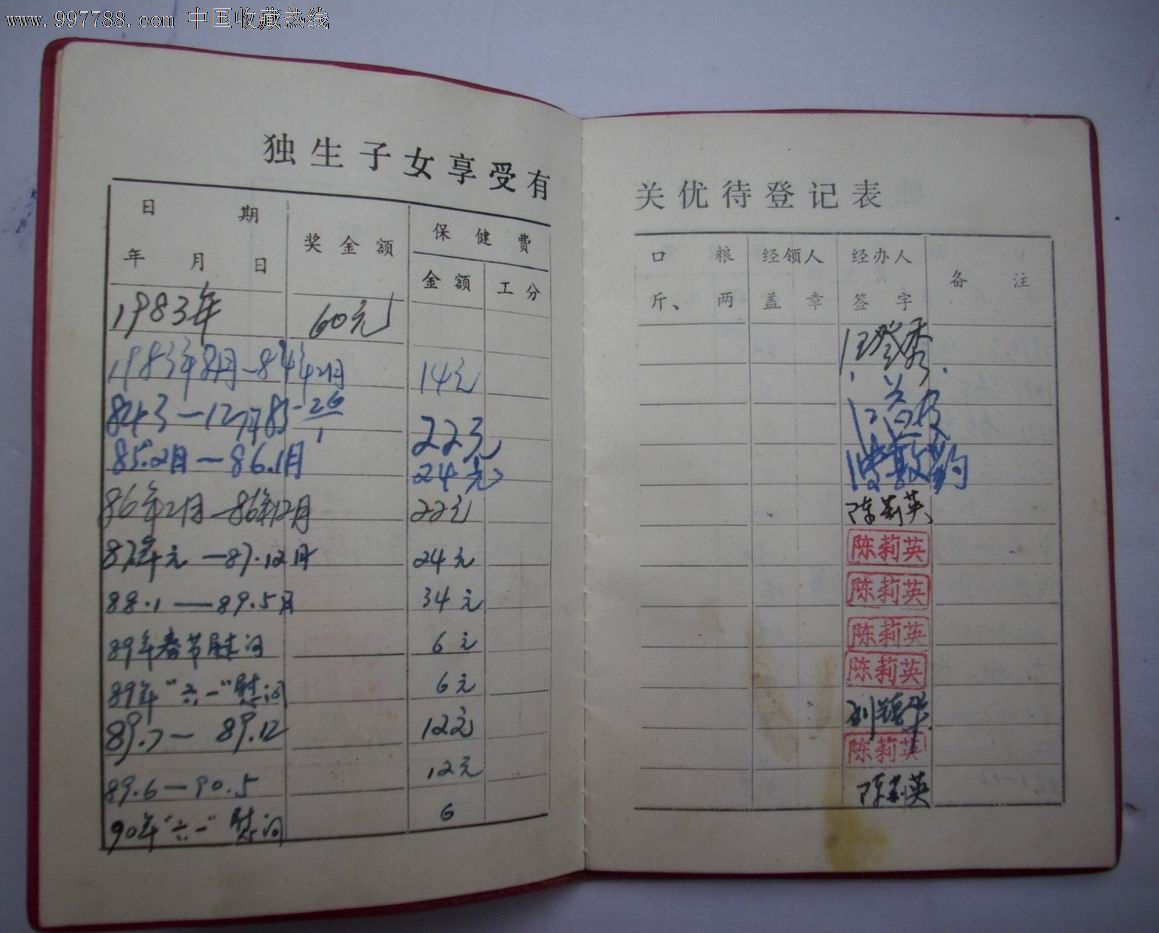 www.997788.com 中国收藏热线
独生子女享受有关优待登记表
日 期 奖金额 保健费 口 粮 经领人 经办人 备 注
年 月 日 金额 工分 斤、 两 盖 章 签 字
1983年 60元
1983年8月-84年2月 14元
84年3-12月 22元
85.2月-86.1月 24元
86年2月-86年12月 22元 陈莉英
87年元-87.12月 24元 陈莉英
88.1-89.5月 34元 陈莉英
89年春节慰问 6元 陈莉英
89年"六一"慰问 6元 陈莉英
89.7-89.12 12元
89.6-90.5 12元 陈莉英
90年"六一"慰问 6 陈莉英